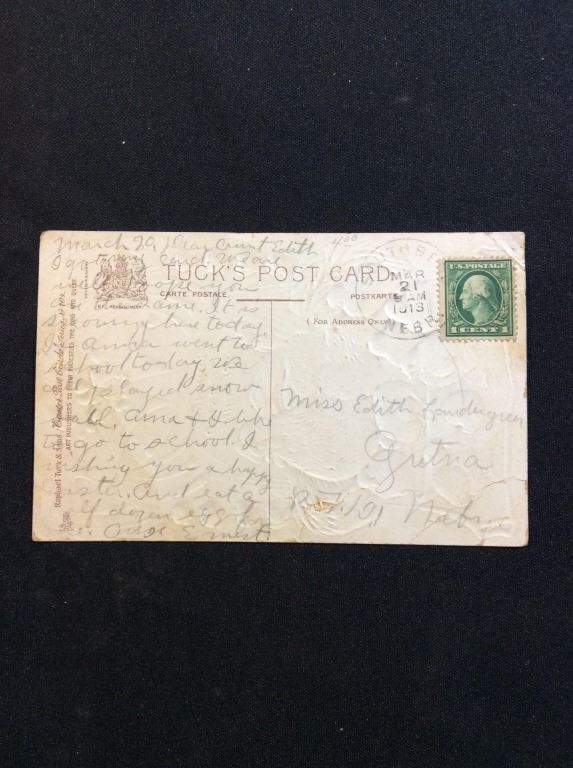 March 20, Dear Aunt Edith 400
I got your card. We are
well hope you
are same. It is
snowing here today.
I & Anna went to
school today. We
played snow
Anna & I like
to go to school. I
wishing you a happy
Easter. And eat a
dozen eggs
Ernest.
TUCK'S POST CARD
CARTE POSTALE
POSTKARTE
( FOR ADDRESS ONLY )
Raphael Tuck & Sons'
ART PUBLISHERS TO THEIR MAJESTIES THE KING AND QUEEN
MAR
21
AM
1913
NEBR
U.S. POSTAGE
1 CENT 1
Miss Edith
Gretna
Nebr